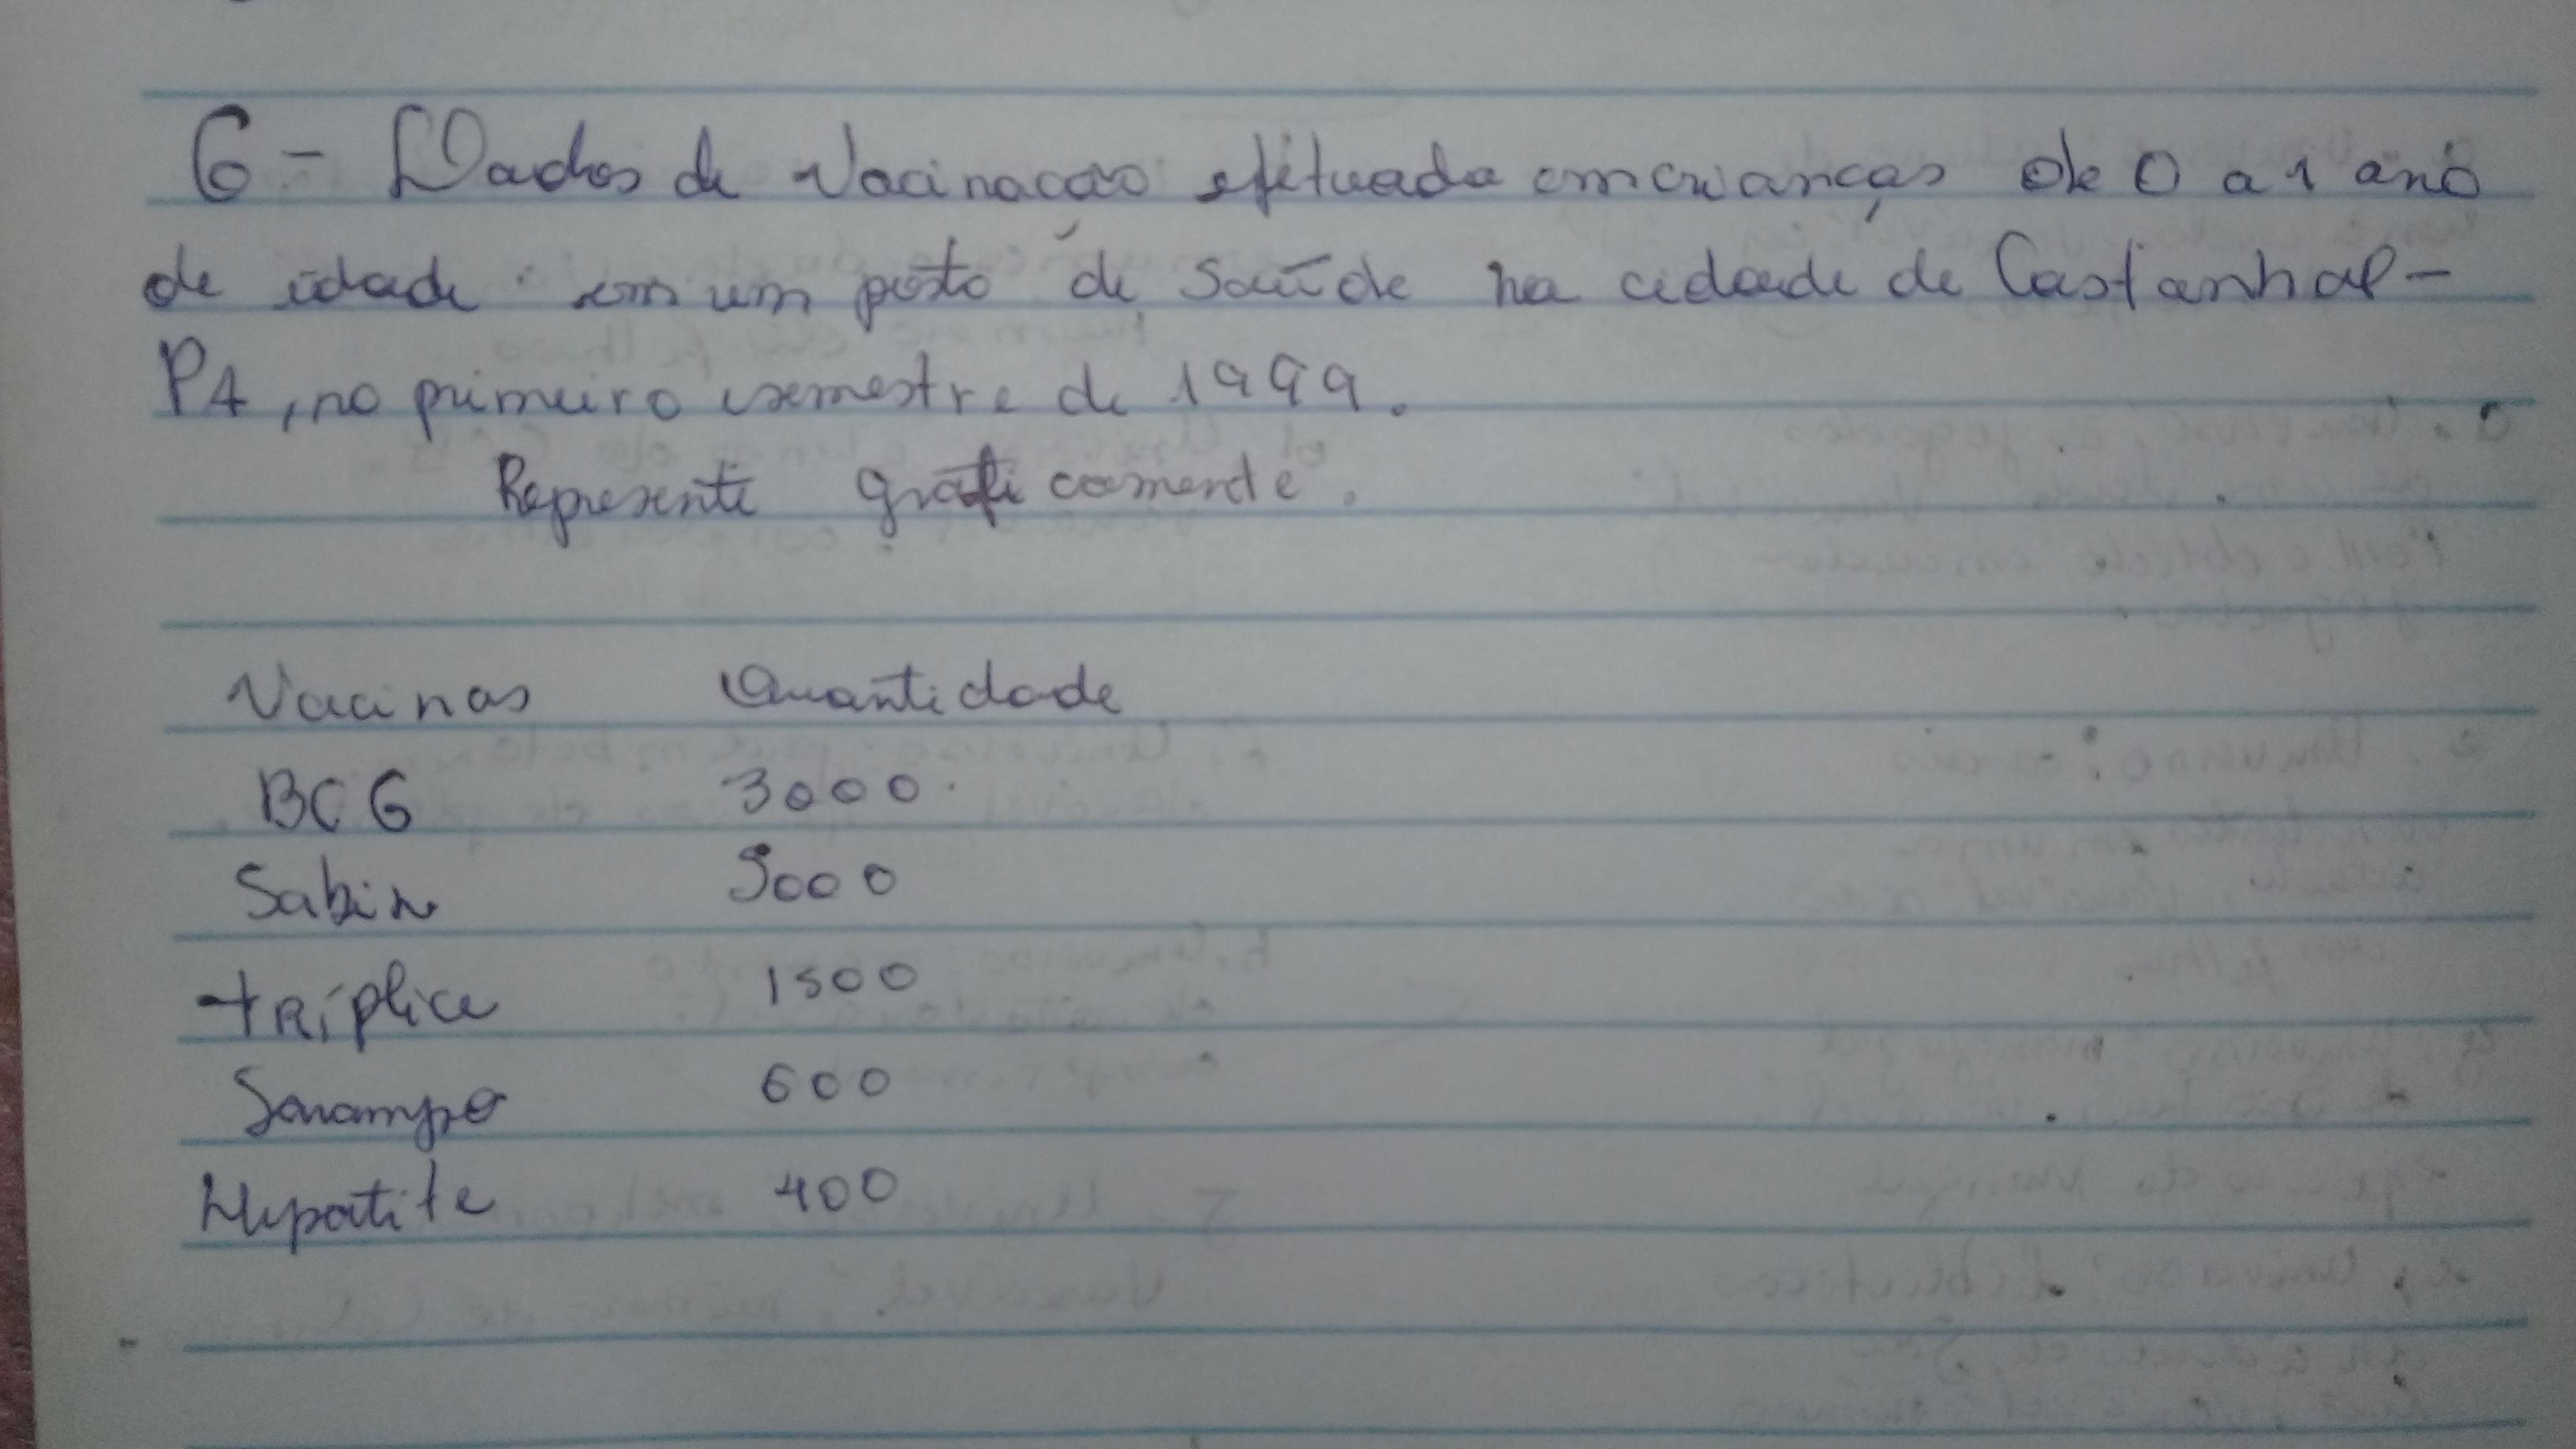 6 - Dados de Vacinação efituada em crianças de 0 a 1 ano
de idade em um posto de saúde na cidade de Castanhal -
PA, no primeiro semestre de 1999.
Represente graficamente.
Vacinas Quantidade
BCG 3000
Sabin 5000
tRíplice 1500
Sarampo 600
Hepatite 400